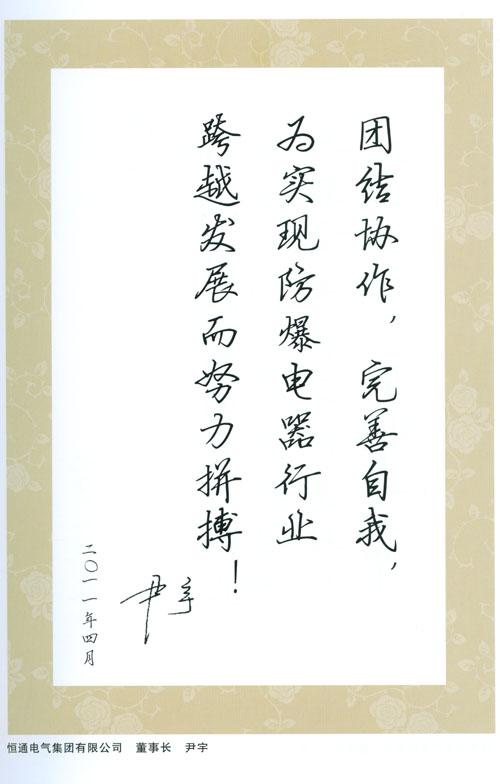 团结协作，完善自我，
为实现防爆电器行业
跨越发展而努力拼搏！
尹宇
二〇一一年四月
恒通电气集团有限公司 董事长 尹宇